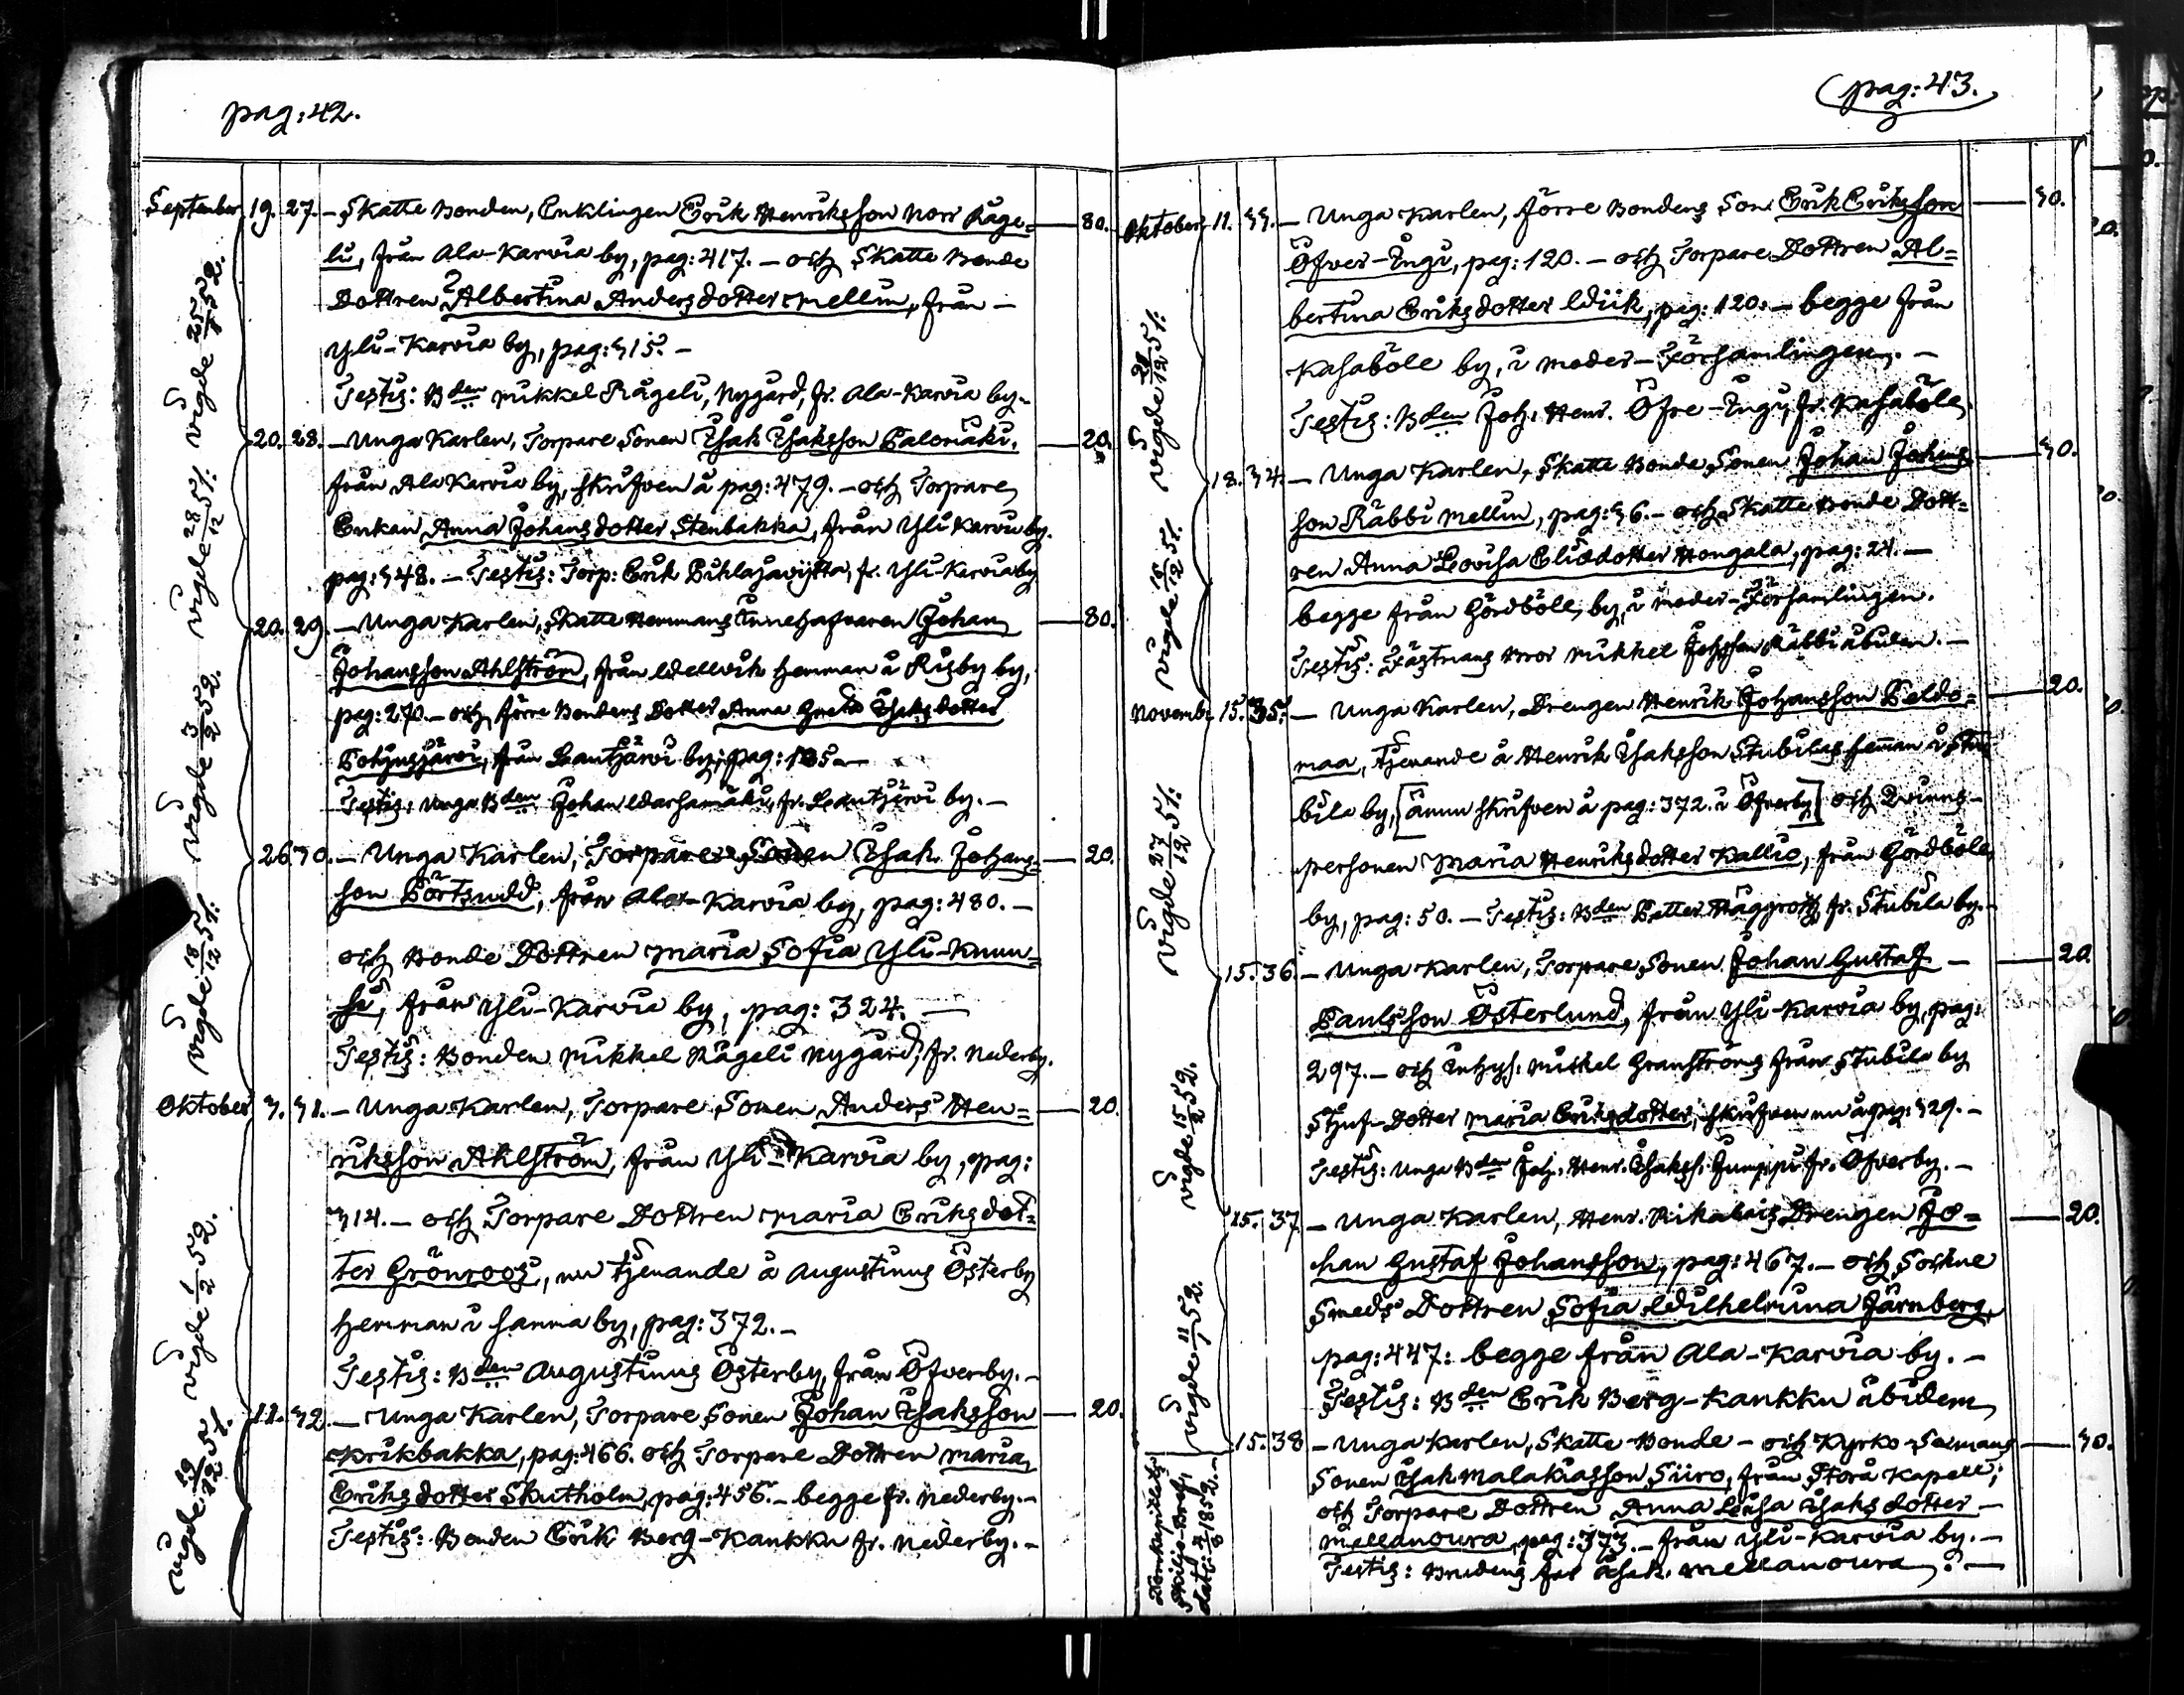 pag: 42.
September 19. 27. – Skatte Bonden, Enklingen Erik Henriksson Norr Råge= — 80.
li, från Ala-Karvia by, pag: 417. – och Skatte Bonde
Dottren Albertina Andersdotter Mellin, från –
Yli-Karvia by, pag: 315. –
Testis: Bden Mikkel Rågeli, Nygård, fr. Ala-Karvia by. –
vigde 25/1 52.
20. 28. – Unga Karlen, Torpare Sonen Isak Isaksson Palomäki, — 20.
från Ala Karvia by, skrifven å pag: 479. – och Torpare
Enkan Anna Johansdotter Stenbakka, från Yli Karvia by.
pag: 348. – Testis: Torp: Erik Pihlajaviitta, fr. Yli-Karvia by
vigde 28/12 51.
20. 29. – Unga Karlen, Skatte Hemmans Innehafvaren Johan — 80.
Johansson Ahlström, från Wellvik hemman å Risby by,
pag: 270. – och förre Bondens Dotter Anna Greta Isaksdotter
Pohjusjärvi, från Lantjärvi by, pag: 185 –
Testis: Unga Bden Johan Warhamäki, fr. Lantjärvi by. –
vigde 3/2 52.
26. 30. – Unga Karlen, Torpare Sonen Isak Johans= — 20.
son Pörtsudd, från Ala-Karvia by, pag: 480. –
och Bonde Dottren Maria Sofia Yli-Knuu=
si, från Yli-Karvia by, pag: 324. –
Testis: Bonden Mikkel Rågeli Nygård, fr. Nederby.
vigde 18/12 51.
Oktober 3. 31. – Unga Karlen, Torpare Sonen Anders Hen= — 20.
riksson Ahlström, från Yli-Karvia by, pag:
314. – och Torpare Dottren Maria Eriksdot=
ter Grönroos, nu tjenande å Augustinus Österby
hemman i samma by, pag: 372. –
Testis: Bden Augustinus Österby, från Öfverby. –
vigde 1/2 52.
11. 32. – Unga Karlen, Torpare Sonen Johan Isaksson — 20.
Krikbakka, pag: 466. och Torpare Dottren Maria
Eriksdotter Skutholm, pag: 456. – begge fr. Nederby. –
Testis: Bonden Erik Berg-Kankku fr. Nederby. –
vigde 19/12 51.
pag: 43.
Oktober 11. 33. – Unga Karlen, förre Bondens Son Erik Eriksson — 30.
Öfver-Ingi, pag: 120. – och Torpare Dottren Al=
bertina Eriksdotter Wiik, pag: 120. – begge från
Kasaböle by, i Moder-Församlingen. –
Testis: Bden Joh. Henr. Öfre-Ingi, fr. Kasaböle.
vigde 21/12 51.
18. 34. – Unga Karlen, Skatte Bonde Sonen Johan Johans — 30.
son Räbbi Mellin, pag: 36. – och Skatte Bonde Dott=
ren Anna Lovisa Eliædotter Hongala, pag: 24. –
begge från Gördböle by, i Moder-Församlingen.
Testis: Fästmans Bror Mikkel Johsson Räbbi åbidem. –
vigde 18/12 51.
Novemb. 15. 35. – Unga Karlen, Drengen Henrik Johansson Peldo= — 20.
maa, tjenande å Henrik Isaksson Stubilas hemman i Stu
bila by, [ännu skrifven å pag: 372. i Öfverby] och Qvinns –
personen Maria Henriksdotter Kallio, från Gördböle
by, pag: 50. – Testis: Bden Petter Häggroth fr. Stubila by. –
vigde 27/12 51.
15. 36. – Unga Karlen, Torpare Sonen Johan Gustaf – — 20.
Paulsson Österlund, från Yli-Karvia by, pag:
297. – och Inhys: Mickel Granströms från Stubila by
Stjuf-Dotter Maria Eriksdotter, skrifven nu å pag: 329. –
Testis: Unga Bden Joh. Henr. Isakss. Jumppi fr. Öfverby. –
vigde 15/2 52.
15. 37. – Unga Karlen, Henr. Rikalais Drengen Jo= — 20.
han Gustaf Johansson, pag: 467. – och Sockne
Smeds Dottren Sofia Wilhelmina Järnberg,
pag: 447: begge från Ala-Karvia by. –
Testis: Bden Erik Berg-Kankku åbidem
vigde 11/1 52.
15. 38. – Unga Karlen, Skatte Bonde – och Kyrko-Sexmans — 30.
Sonen Isak Malakiasson Siiro, från Storå Kapell;
och Torpare Dottren Anna Lisa Isaksdotter –
Mellanoura, pag: 373. – från Yli-Karvia by. –
Testis: Brudens far Isak Mellanoura. –
Domkapitlets
Skiljo-Bref
dat:
1852. –